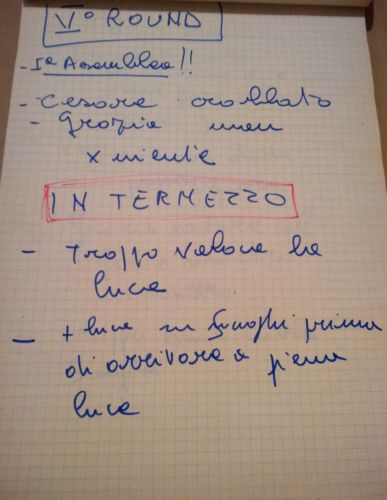 V° ROUND
- Iª Assemblea!!
- Cesare crollato
- Grazia
x niente
INTERMEZZO
- Troppo veloce la
luce
- + luce su fuochi prima
di arrivare a piena
luce